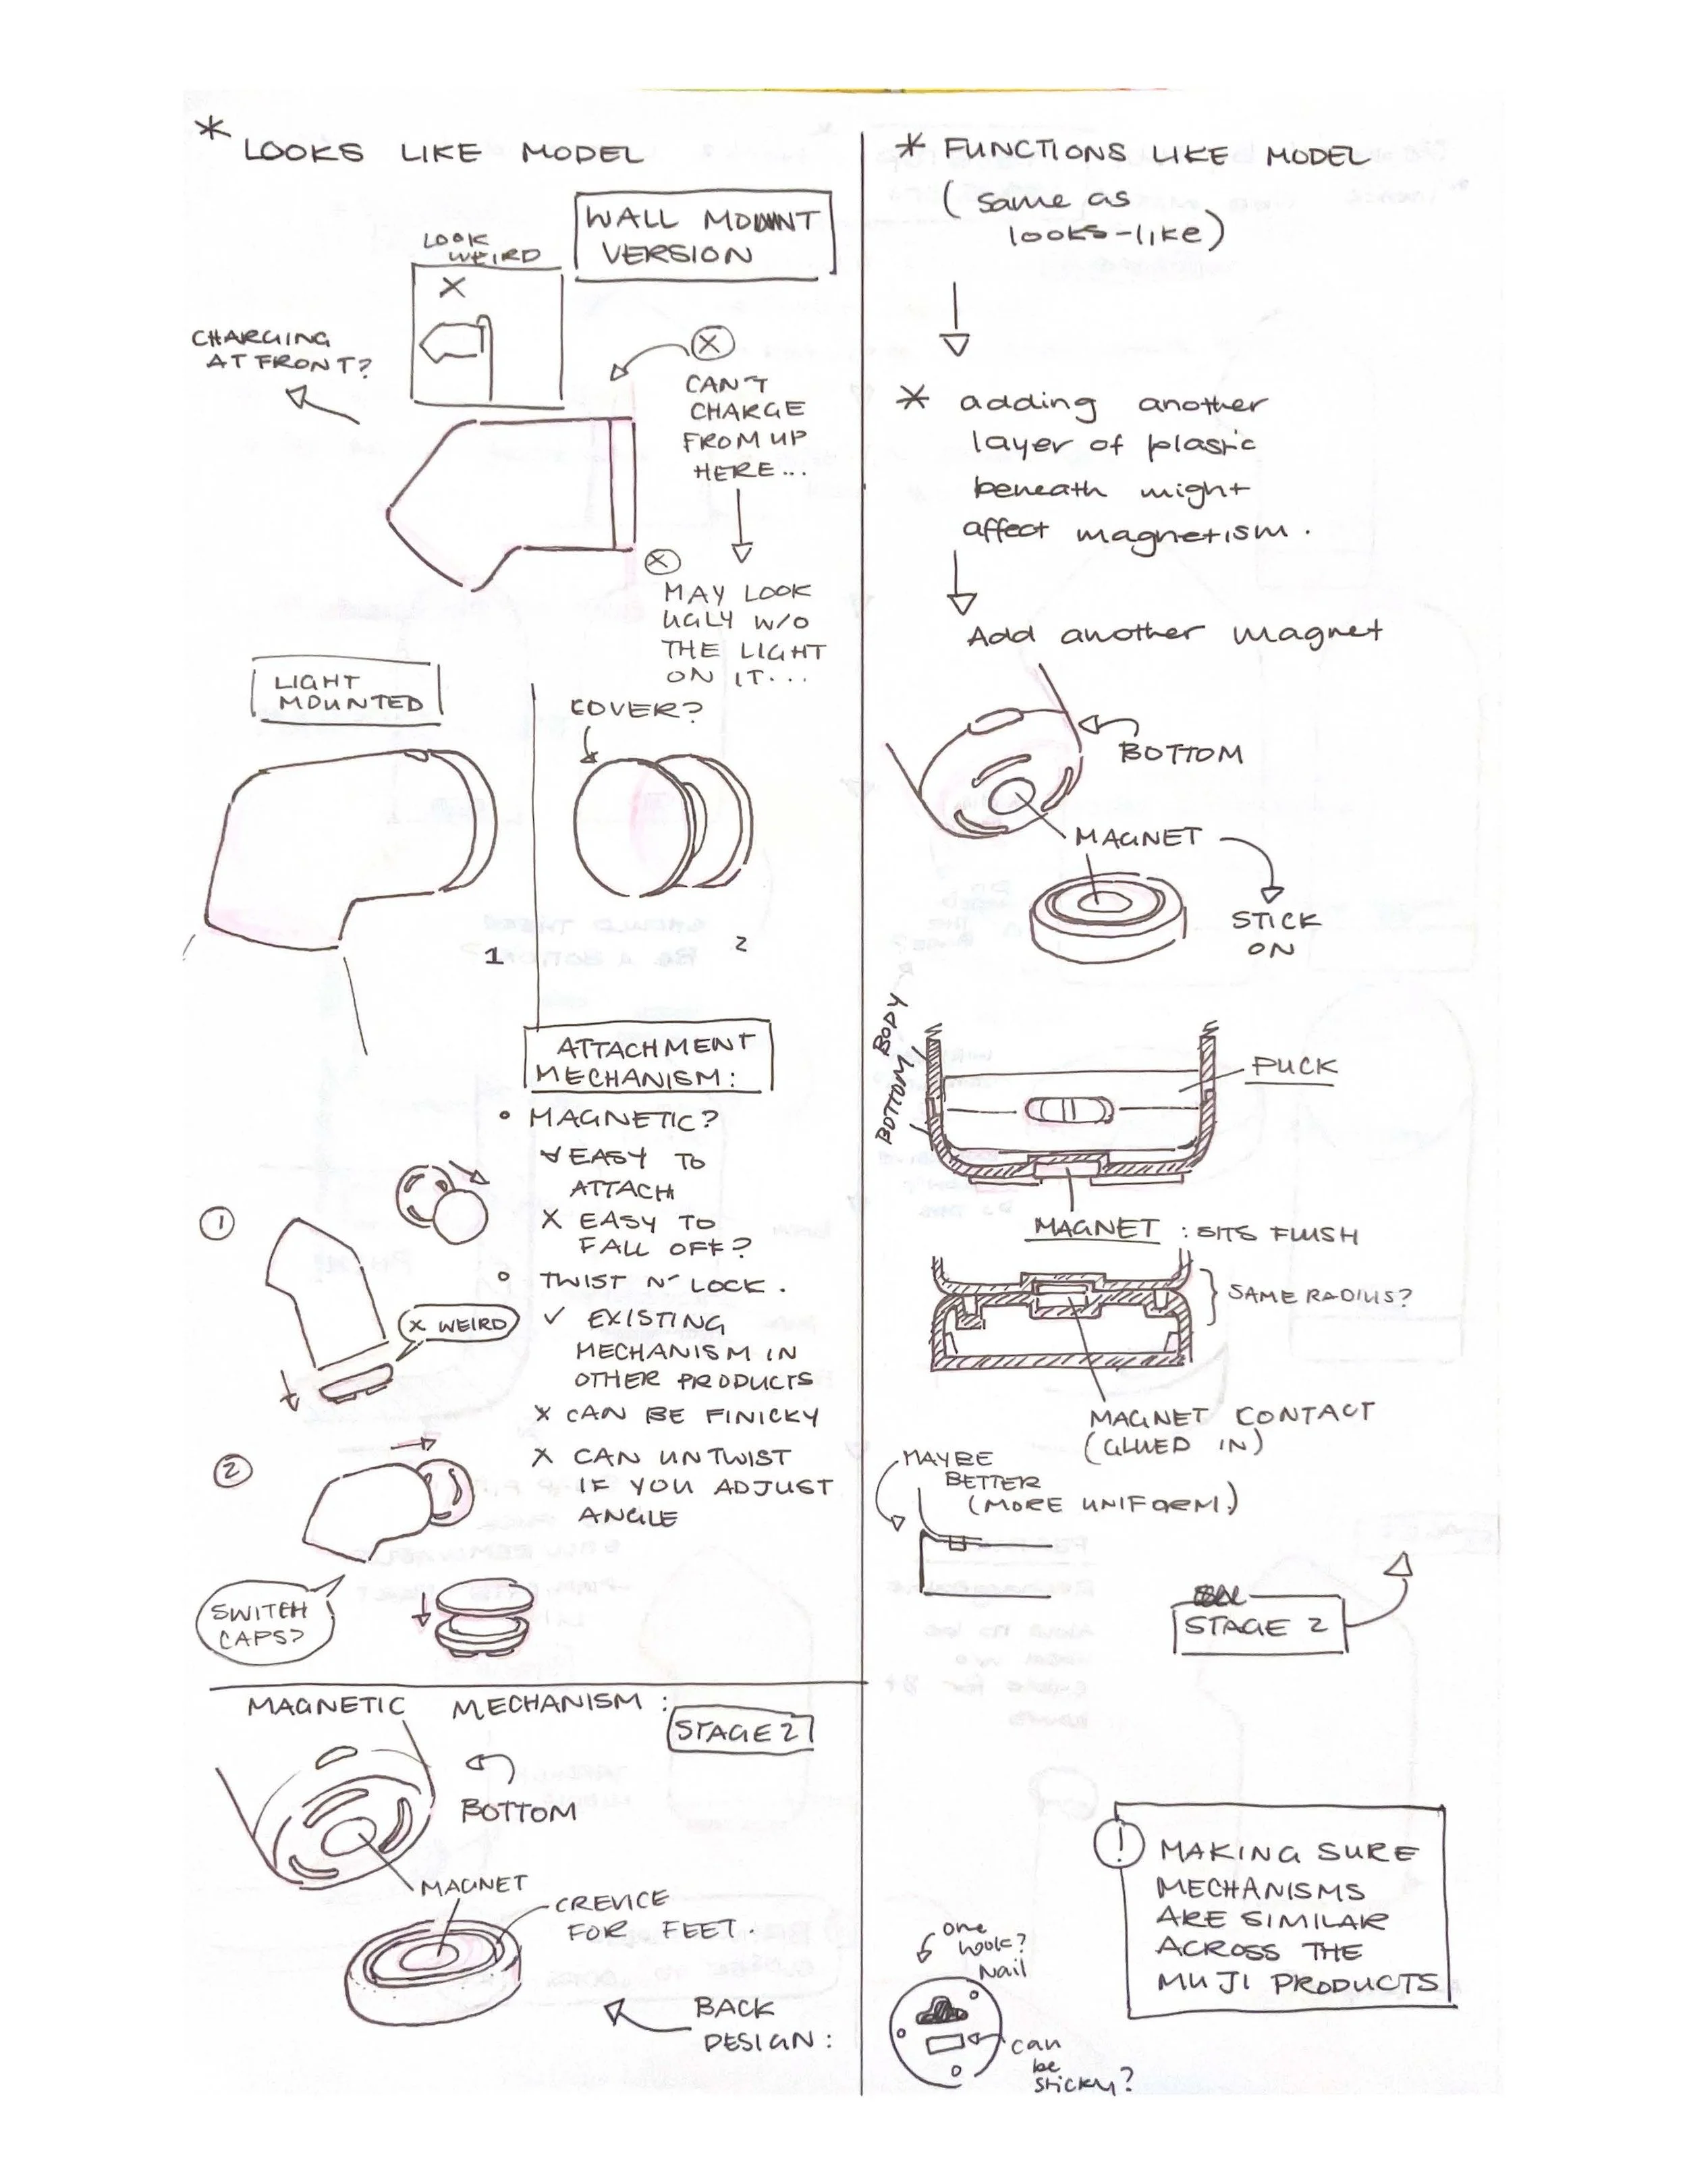 * LOOKS LIKE MODEL
WALL MOUNT
VERSION
LOOK
WEIRD
X
CHARGING
AT FRONT?
X
CAN'T
CHARGE
FROM UP
HERE...
X
MAY LOOK
UGLY W/O
THE LIGHT
ON IT...
LIGHT
MOUNTED
COVER?
1
2
ATTACHMENT
MECHANISM:
° MAGNETIC?
✓ EASY TO
ATTACH
X EASY TO
FALL OFF?
° TWIST N' LOCK.
✓ EXISTING
MECHANISM IN
OTHER PRODUCTS
X CAN BE FINICKY
X CAN UNTWIST
IF YOU ADJUST
ANGLE
1
X WEIRD
2
SWITCH
CAPS?
MAGNETIC MECHANISM:
STAGE 2
BOTTOM
MAGNET
CREVICE
FOR FEET.
BACK
DESIGN:
* FUNCTIONS LIKE MODEL
(same as
looks-like)
* adding another
layer of plastic
beneath might
affect magnetism.
Add another magnet
BOTTOM
MAGNET
STICK
ON
BODY
BOTTOM
PUCK
MAGNET : SITS FLUSH
SAME RADIUS?
MAGNET CONTACT
(GLUED IN)
MAYBE
BETTER
(MORE UNIFORM.)
STAGE 2
! MAKING SURE
MECHANISMS
ARE SIMILAR
ACROSS THE
MUJI PRODUCTS
one
hook?
Nail
can
be
sticky?